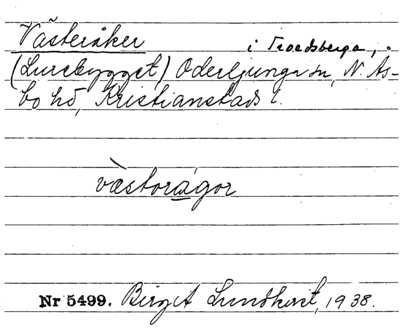 Västeråker i Troedsberga,
(Lurebygget) Oderljunga sn, N. Ås-
bo hd, Kristianstads l.
västorágor
Nr 5499. Birgit Lundkvist, 1938.